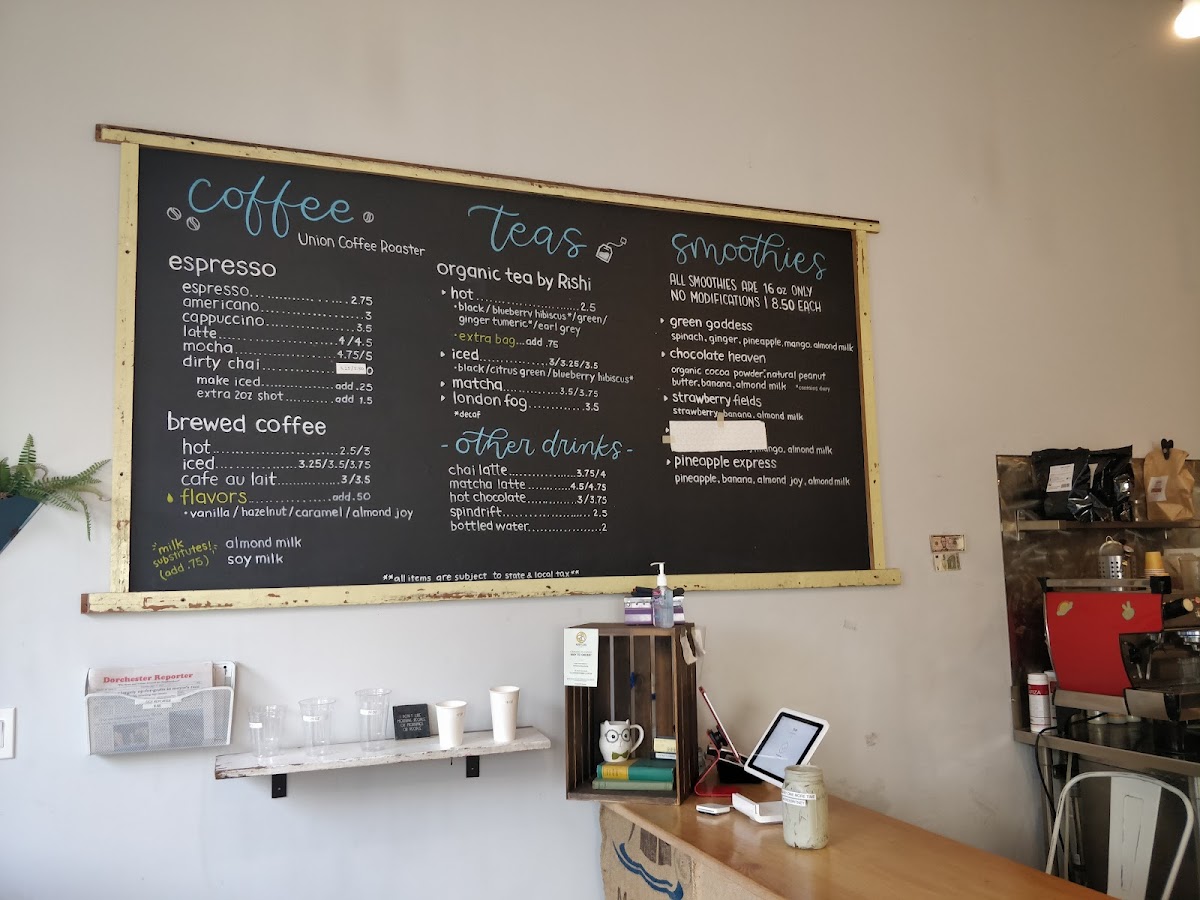 coffee
Union Coffee Roaster
espresso
espresso.....................2.75
americano.....................3
cappuccino.....................3.5
latte.....................4/4.5
mocha.....................4.75/5
dirty chai.....................
make iced.....................add .25
extra 2oz shot...........add 1.5
brewed coffee
hot.....................2.5/3
iced.....................3.25/3.5/3.75
cafe au lait.....................3/3.5
flavors.....................add .50
•vanilla/hazelnut/caramel/almond joy
milk
substitutes!
(add .75)
almond milk
soy milk
teas
organic tea by Rishi
hot.....................2.5
•black/blueberry hibiscus*/green/
ginger tumeric*/earl grey
•extra bag...add .75
iced.....................3/3.25/3.5
•black/citrus green/blueberry hibiscus*
matcha.....................3.5/3.75
london fog............3.5
*decaf
-other drinks-
chai latte.....................3.75/4
matcha latte.............4.5/4.75
hot chocolate............3/3.75
spindrift.....................2.5
bottled water...............2
smoothies
ALL SMOOTHIES ARE 16 oz ONLY
NO MODIFICATIONS | 8.50 EACH
green goddess
spinach, ginger, pineapple, mango, almond milk
chocolate heaven
organic cocoa powder, natural peanut
butter, banana, almond milk
strawberry fields
strawberry, banana, almond milk
mango, almond milk
pineapple express
pineapple, banana, almond joy, almond milk
**all items are subject to state & local tax**
Dorchester Reporter